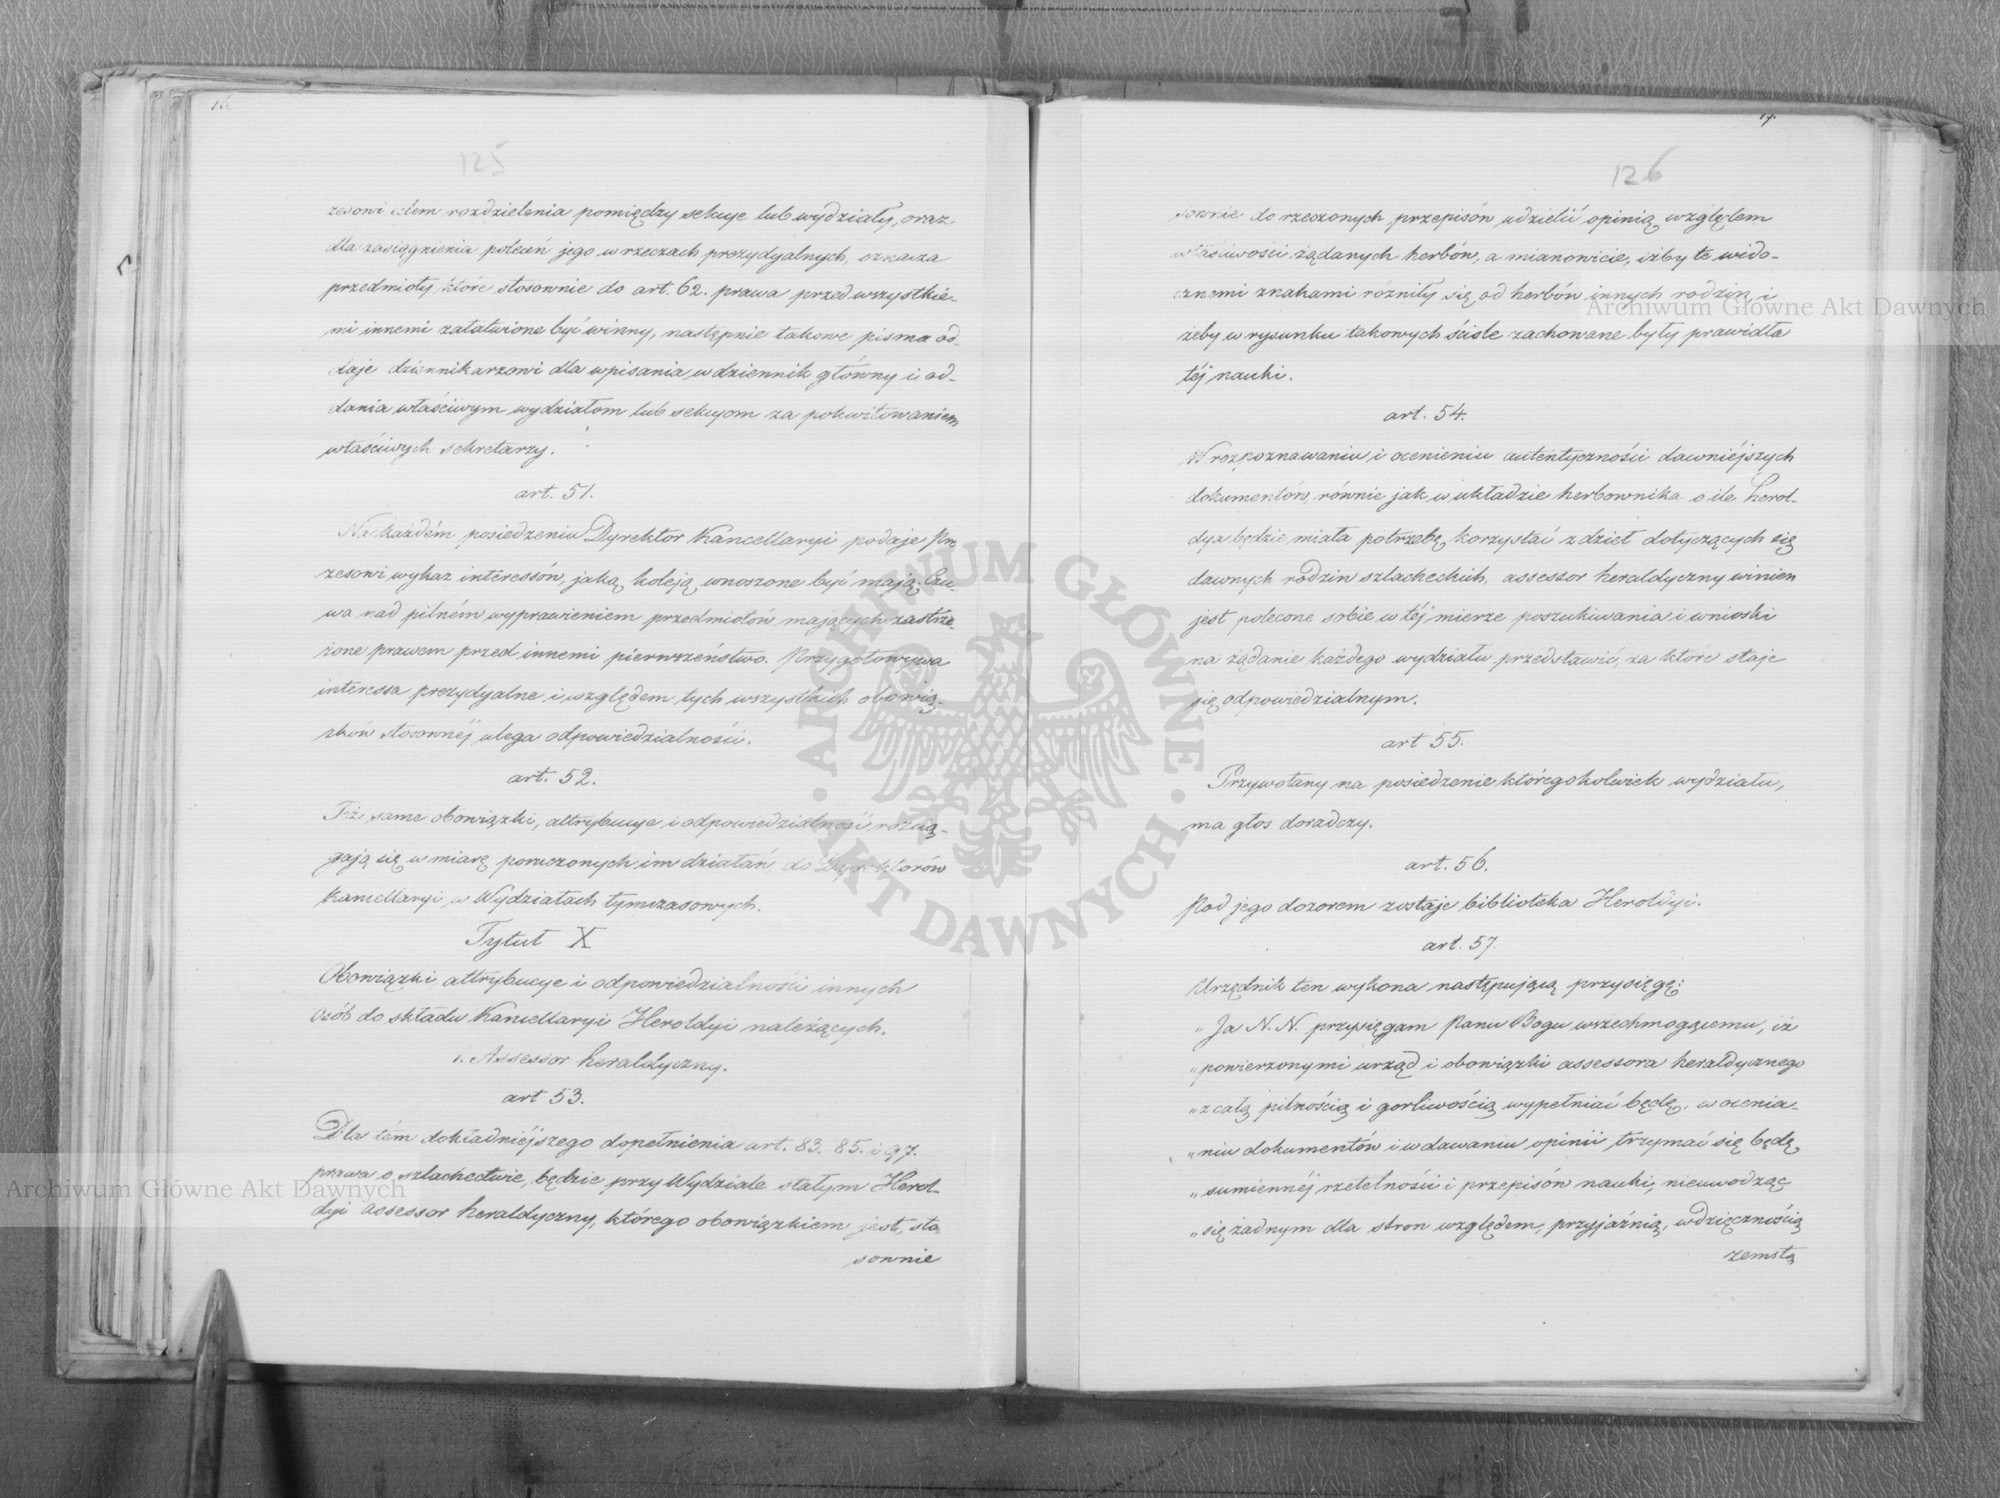 125
zesowi celem rozdzielenia pomiędzy sekcye lub wydziały, oraz
dla zasiągnienia poleceń jego w rzeczach prezydyalnych, oznacza
przedmioty które stosownie do art. 62. prawa przed wszystkie-
mi innemi załatwione być winny, następnie takowe pisma od-
daje dziennikarzowi dla wpisania w dziennik główny i od-
dania właściwym wydziałom lub sekcyom za pokwitowaniem
właściwych sekretarzy.
art. 51.
Na każdém posiedzeniu Dyrektor Kancellaryi podaje Pre
zesowi wykaz interessów, jaką koleją wnoszone być mają. Czu-
wa nad pilném wyprawieniem przedmiotów mających zastrze-
żone prawem przed innemi pierwszeństwo. Przygotowywa
interessa prezydyalne i względem tych wszystkich obowią-
zków stosownéj ulega odpowiedzialności.
art. 52.
Też same obowiązki, attrybucye i odpowiedzialność rozcią-
gają się w miarę poruczonych im działań do Dyrektorów
Kancellaryi w Wydziałach tymczasowych.
Tytuł X
Obowiązki attrybucye i odpowiedzialności innych
osób do składu Kancellaryi Heroldyi należących.
1. Assessor heraldyczny.
art 53.
Dla tém dokładniéjszego dopełnienia art. 83. 85. i 97.
prawa o szlachectwie, będzie przy Wydziale stałym Herol-
dyi assessor heraldyczny, którego obowiązkiem jest, sto-
sownie
17
126
sownie do rzeczonych przepisów udzielić opinią względem
właściwości żądanych herbów, a mianowicie, iżby te wido-
cznemi znakami różniły się od herbów innych rodzin i
żeby w rysunku takowych ściśle zachowane były prawidła
téj nauki.
art. 54.
W rozpoznawaniu i ocenieniu autentyczności dawniéjszych
dokumentów, równie jak w układzie herbownika o ile Herol-
dya będzie miała potrzebę korzystać z dzieł dotyczących się
dawnych rodzin szlacheckich, assessor heraldyczny winien
jest polecone sobie w téj mierze poszukiwania i wnioski
na żądanie każdego wydziału przedstawić, za które staje
się odpowiedzialnym.
art 55.
Przywołany na posiedzenie któregokolwiek wydziału,
ma głos doradczy.
art. 56.
Pod jego dozorem zostaje biblioteka Heroldyi.
art. 57.
Urzędnik ten wykona następującą przysięgę:
„Ja N. N. przysięgam Panu Bogu wszechmogącemu, iż
„powierzonymi urząd i obowiązki assessora heraldycznego
„z całą pilnością i gorliwością wypełniać będę, w ocenia-
„niu dokumentów i w dawaniu opinii trzymać się będę
„sumiennéj rzetelności i przepisów nauki, nieuwodząc
„się żadnym dla stron względem, przyjaźnią, wdzięcznością
zemstą
Archiwum Główne Akt Dawnych
Archiwum Główne Akt Dawnych
ARCHIWUM GŁÓWNE · AKT DAWNYCH ·